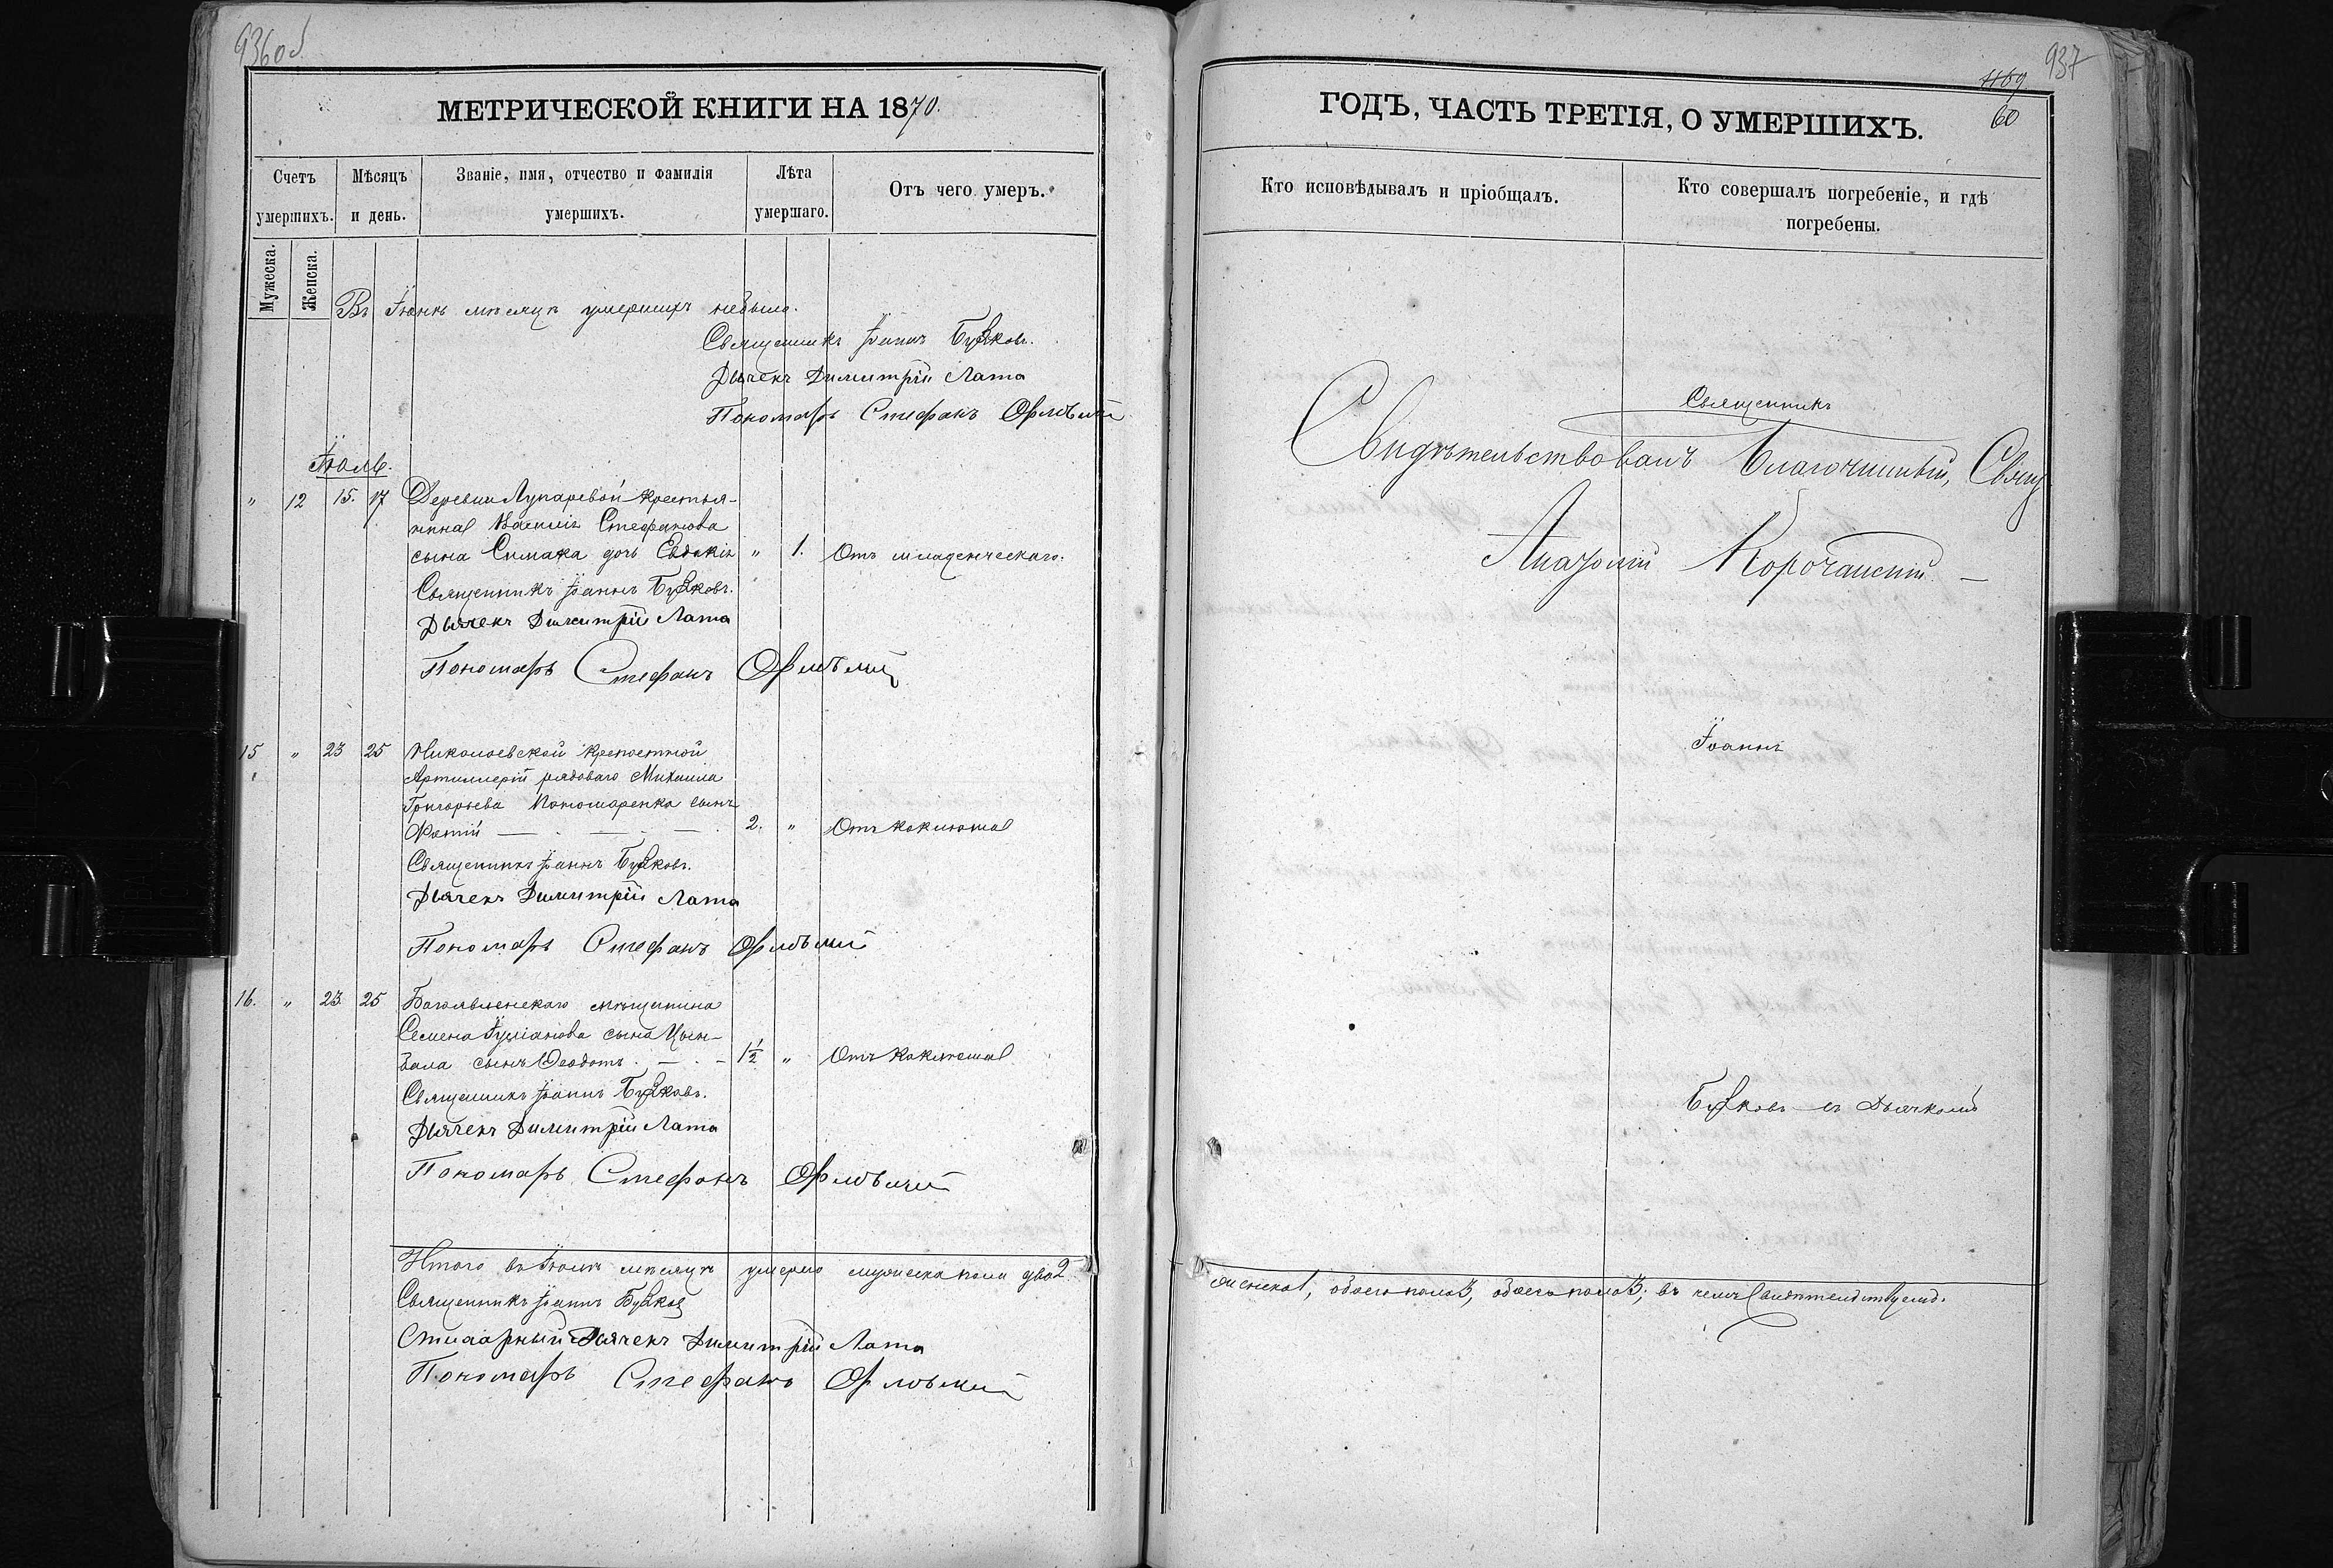 936об
МЕТРИЧЕСКОЙ КНИГИ НА 1870.
Счетъ умершихъ.
Мужеска.
Женска.
Мѣсяцъ и день.
Званіе, имя, отчество и фамилія умершихъ.
Лѣта умершаго.
Отъ чего умеръ.
Въ Іюнѣ мѣсяцѣ умершихъ небыло.
Священникъ Іоаннъ Бужковъ.
Дьячекъ Димитрій Лата
Пономарь Стефанъ Орловскій
Іюль.
" 12 15. 17 Деревни Лупаревой крестья-
нина Василія Стефанова
сына Симака дочь Евдокія " 1. Отъ младенческаго.
Священникъ Іоаннъ
Дьячекъ Димитрій Лата
Пономарь Стефанъ Орловскій
15 " 23 25 Николаевской крепостной
Артиллеріи рядоваго Михаила
Григорьева Пономаренка сынъ
Фотій 2. " Отъ коклюша
Священникъ Іоаннъ
Дьячекъ Димитрій Лата
Пономарь Стефанъ Орловскій
16. " 23 25 Богоявленскаго мѣщанина
Семена сына Цын-
сынъ Феодотъ 1½ " Отъ коклюша
Священникъ Іоаннъ
Дьячекъ Димитрій Лата
Пономарь Стефанъ Орловскій
Итого въ Іюлѣ мѣсяцѣ умерло мужеска пола два 2
Священникъ Іоаннъ
Дьячекъ Димитрій Лата
Пономарь Стефанъ Орловскій
937
1169
60
ГОДЪ, ЧАСТЬ ТРЕТІЯ, О УМЕРШИХЪ.
Кто исповѣдывалъ и пріобщалъ.
Кто совершалъ погребеніе, и гдѣ погребены.
Священникъ
Свидѣтельствовалъ Благочинный, Свящ
Анатолій Корочанскій
Іоаннъ
съ Дьячкомъ
женска 1, обоего пола 3, обоего пола 3; въ чемъ свидѣтельствуемъ.